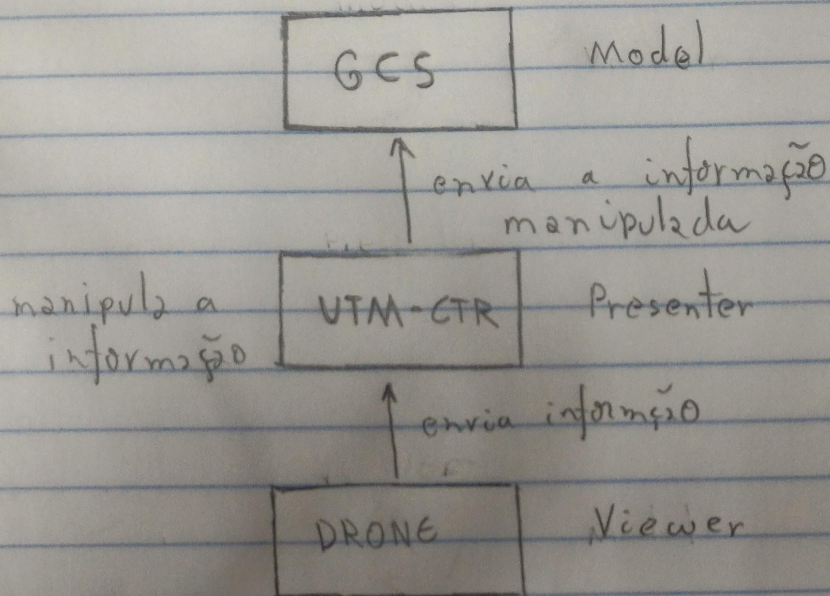 GCS Model
envia a informação
manipulada
manipula a
informação
UTM-CTR Presenter
envia informção
DRONE Viewer